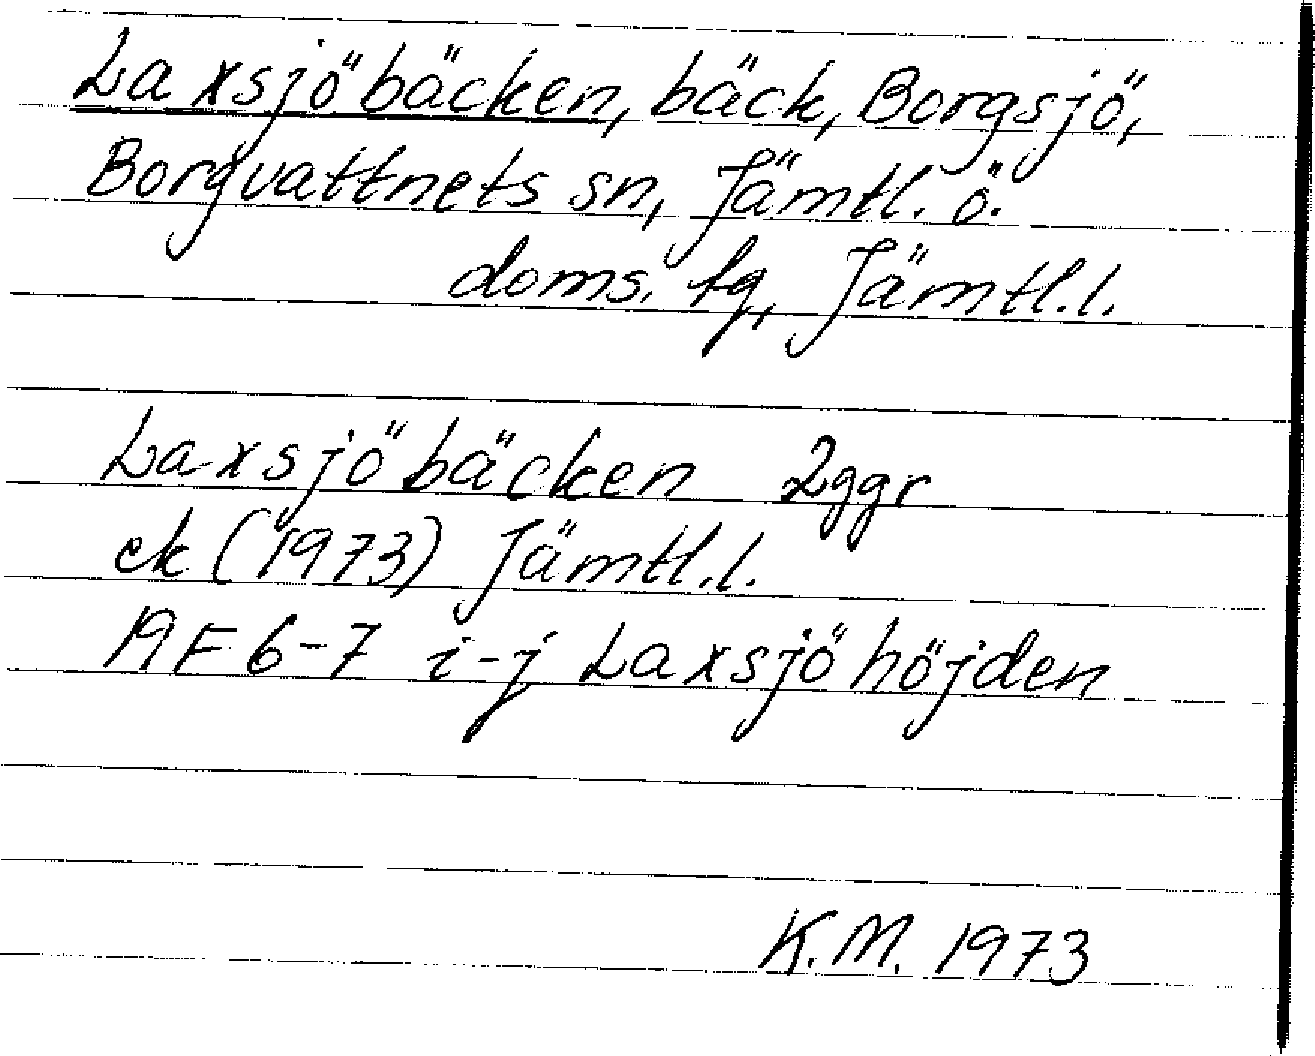 Laxsjöbäcken, bäck, Borgsjö,
Borgvattnets sn, Jämtl. ö.
doms. fg, Jämtl.l.
Laxsjöbäcken 2ggr
ek (1973) Jämtl.l.
19F 6-7 i-j Laxsjöhöjden
K.M. 1973